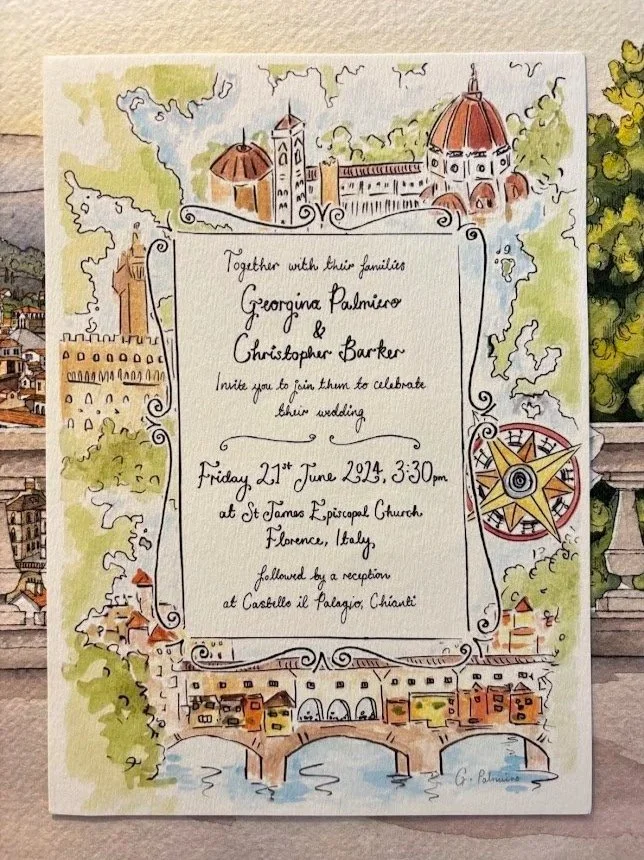 Together with their families
Georgina Palmiero
&
Christopher Barker
Invite you to join them to celebrate
their wedding
Friday 21st June 2024, 3:30pm
at St James Episcopal Church,
Florence, Italy,
followed by a reception
at Castello il Palagio, Chianti
G. Palmiero